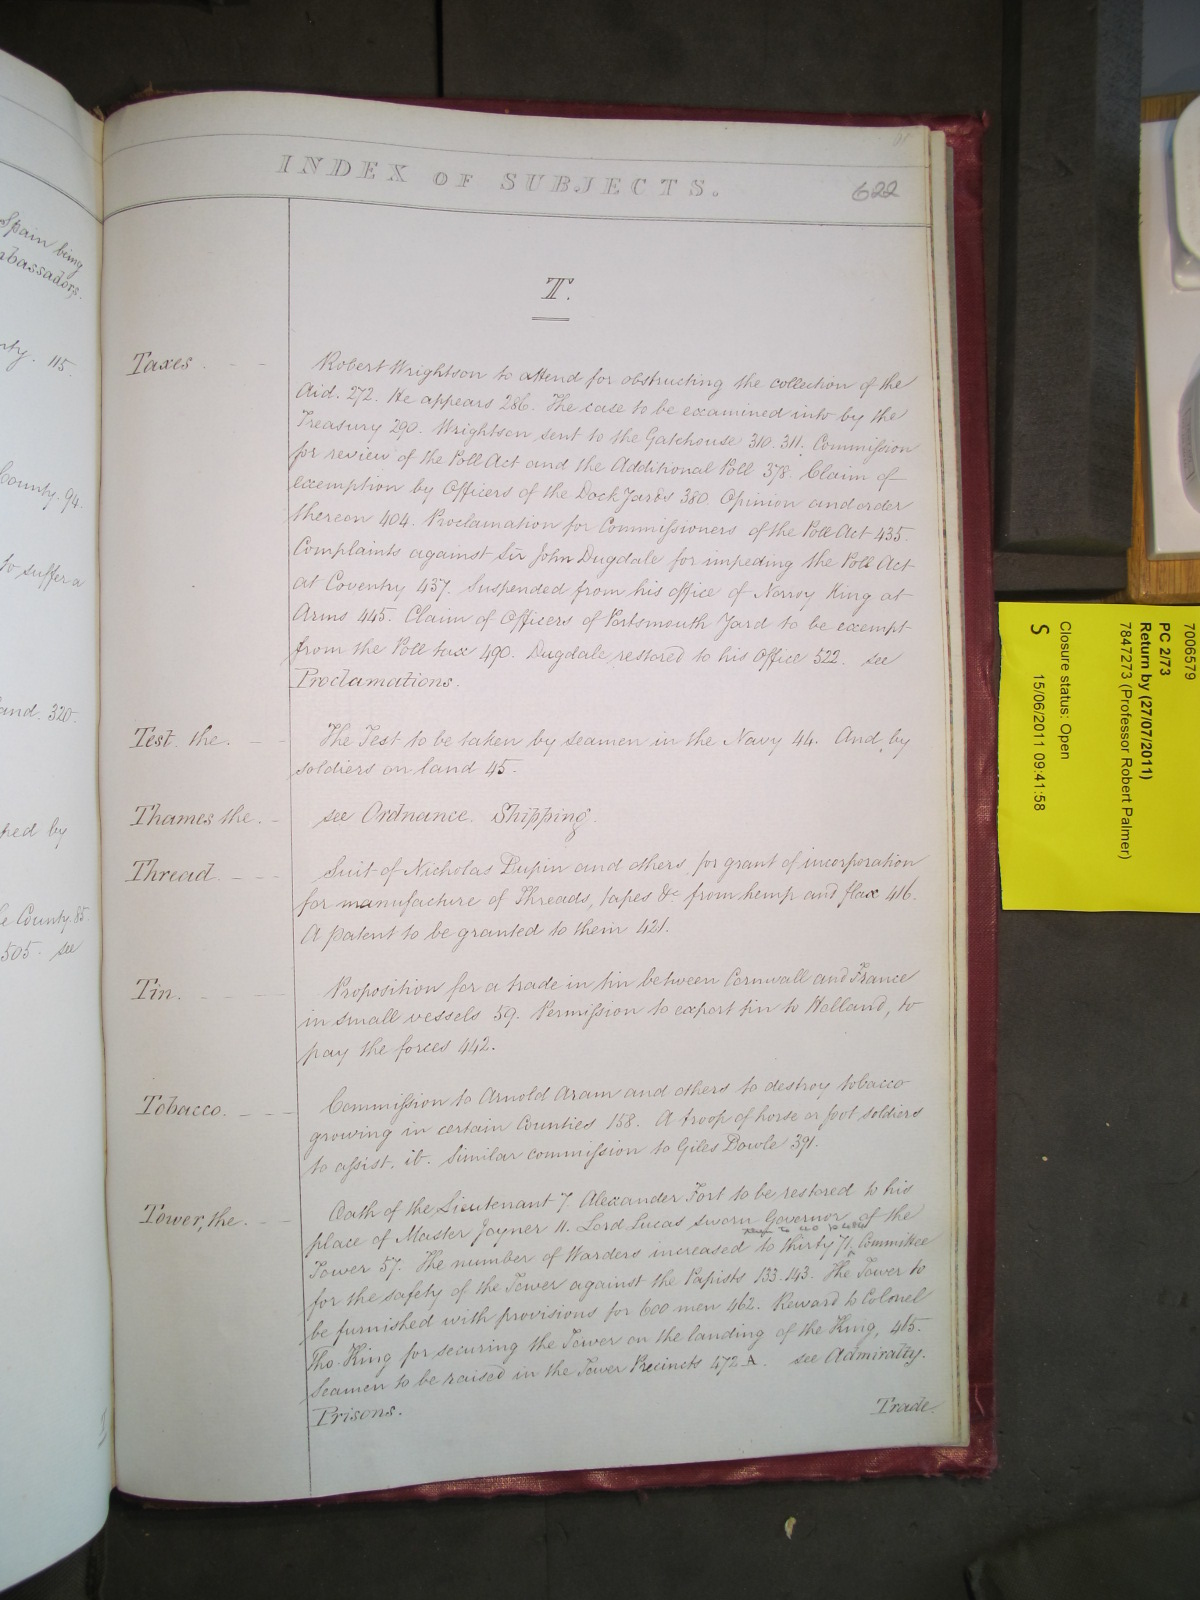 Spain being
mbassadors.
nty. 115.
County. 94.
to suffer a
and. 320.
ped by
e County 85.
505. see
INDEX OF SUBJECTS.
622
T.
Taxes
Robert Wrightson to attend for obstructing the collection of the
Aid. 272. He appears 286. The case to be examined into by the
Treasury 290. Wrightson sent to the Gatehouse 310. 311. Commission
for review of the Poll Act and the Additional Poll 378. Claim of
exemption by Officers of the Dock Yards 380. Opinion and order
thereon 404. Proclamation for Commissioners of the Poll Act 435.
Complaints against Sir John Dugdale for impeding the Poll Act
at Coventry 437. Suspended from his office of Norroy King at
Arms 445. Claim of Officers of Portsmouth Yard to be exempt
from the Poll tax 490. Dugdale restored to his Office 522. see
Proclamations.
Test. the.
The Test to be taken by seamen in the Navy 44. And by
soldiers on land 45.
Thames the.
see Ordnance. Shipping.
Thread
Suit of Nicholas Dupin and others, for grant of incorporation
for manufacture of Threads, tapes &c from hemp and flax 416.
A patent to be granted to them 421.
Tin.
Proposition for a trade in tin between Cornwall and France
in small vessels 59. Permission to export tin to Holland, to
pay the forces 442.
Tobacco.
Commission to Arnold Aram and others to destroy tobacco
growing in certain Counties 158. A troop of horse or foot soldiers
to assist, ib. Similar commission to Giles Dowle 391.
Tower, the.
Oath of the Lieutenant 7. Alexander Fort to be restored to his
place of Master Joyner 11. Lord Lucas sworn Governor of the
Tower 57. The number of Warders increased to thirty 71. Committee
for the safety of the Tower against the Papists 133. 143. The Tower to
be furnished with provisions for 600 men 462. Reward to Colonel
Tho. King for securing the Tower on the landing of the King, 465.
Seamen to be raised in the Tower Precincts 472 A. see Admiralty.
Prisons.
Trade.
7006579
PC 2/73
Return by (27/07/2011)
7847273 (Professor Robert Palmer)
Closure status: Open
S 15/06/2011 09:41:58